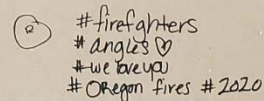 #firefghters
#angles ♡
#we love you
#Oregon fires #2020